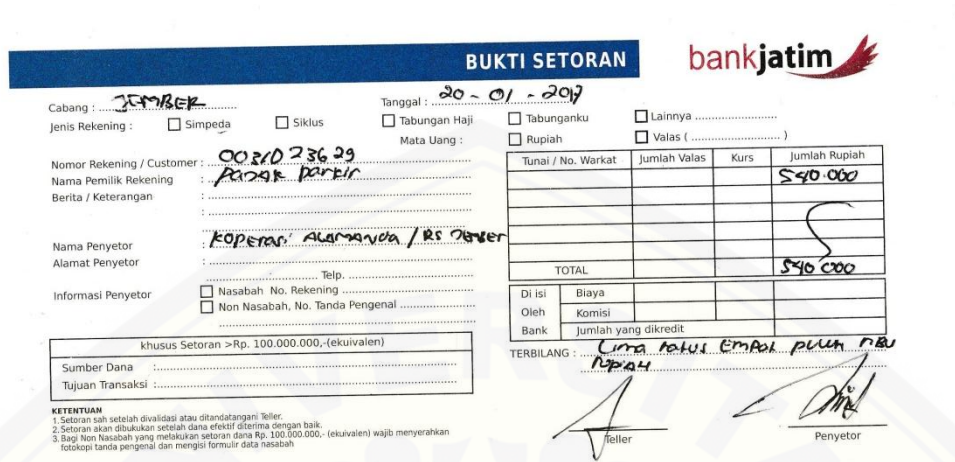 BUKTI SETORAN
bankjatim
Cabang : JEMBER
Tanggal : 20 - 01 - 2017
Jenis Rekening : Simpeda Siklus Tabungan Haji Tabunganku Lainnya
Mata Uang : Rupiah Valas ( )
Nomor Rekening / Customer : 0031023629
Nama Pemilik Rekening : Pajak parkir
Berita / Keterangan :
Nama Penyetor : Koperasi Alamanda / RS Jember
Alamat Penyetor :
Telp.
Informasi Penyetor Nasabah No. Rekening
Non Nasabah, No. Tanda Pengenal
Tunai / No. Warkat Jumlah Valas Kurs Jumlah Rupiah
540.000
TOTAL 540 000
Di isi Oleh Bank
Biaya
Komisi
Jumlah yang dikredit
khusus Setoran >Rp. 100.000.000,-(ekuivalen)
Sumber Dana :
Tujuan Transaksi :
TERBILANG : Lima ratus Empat puluh ribu
rupiah
KETENTUAN
1. Setoran sah setelah divalidasi atau ditandatangani Teller.
2. Setoran akan dibukukan setelah dana efektif diterima dengan baik.
3. Bagi Non Nasabah yang melakukan setoran dana Rp. 100.000.000,- (ekuivalen) wajib menyerahkan
fotokopi tanda pengenal dan mengisi formulir data nasabah
Teller
Penyetor